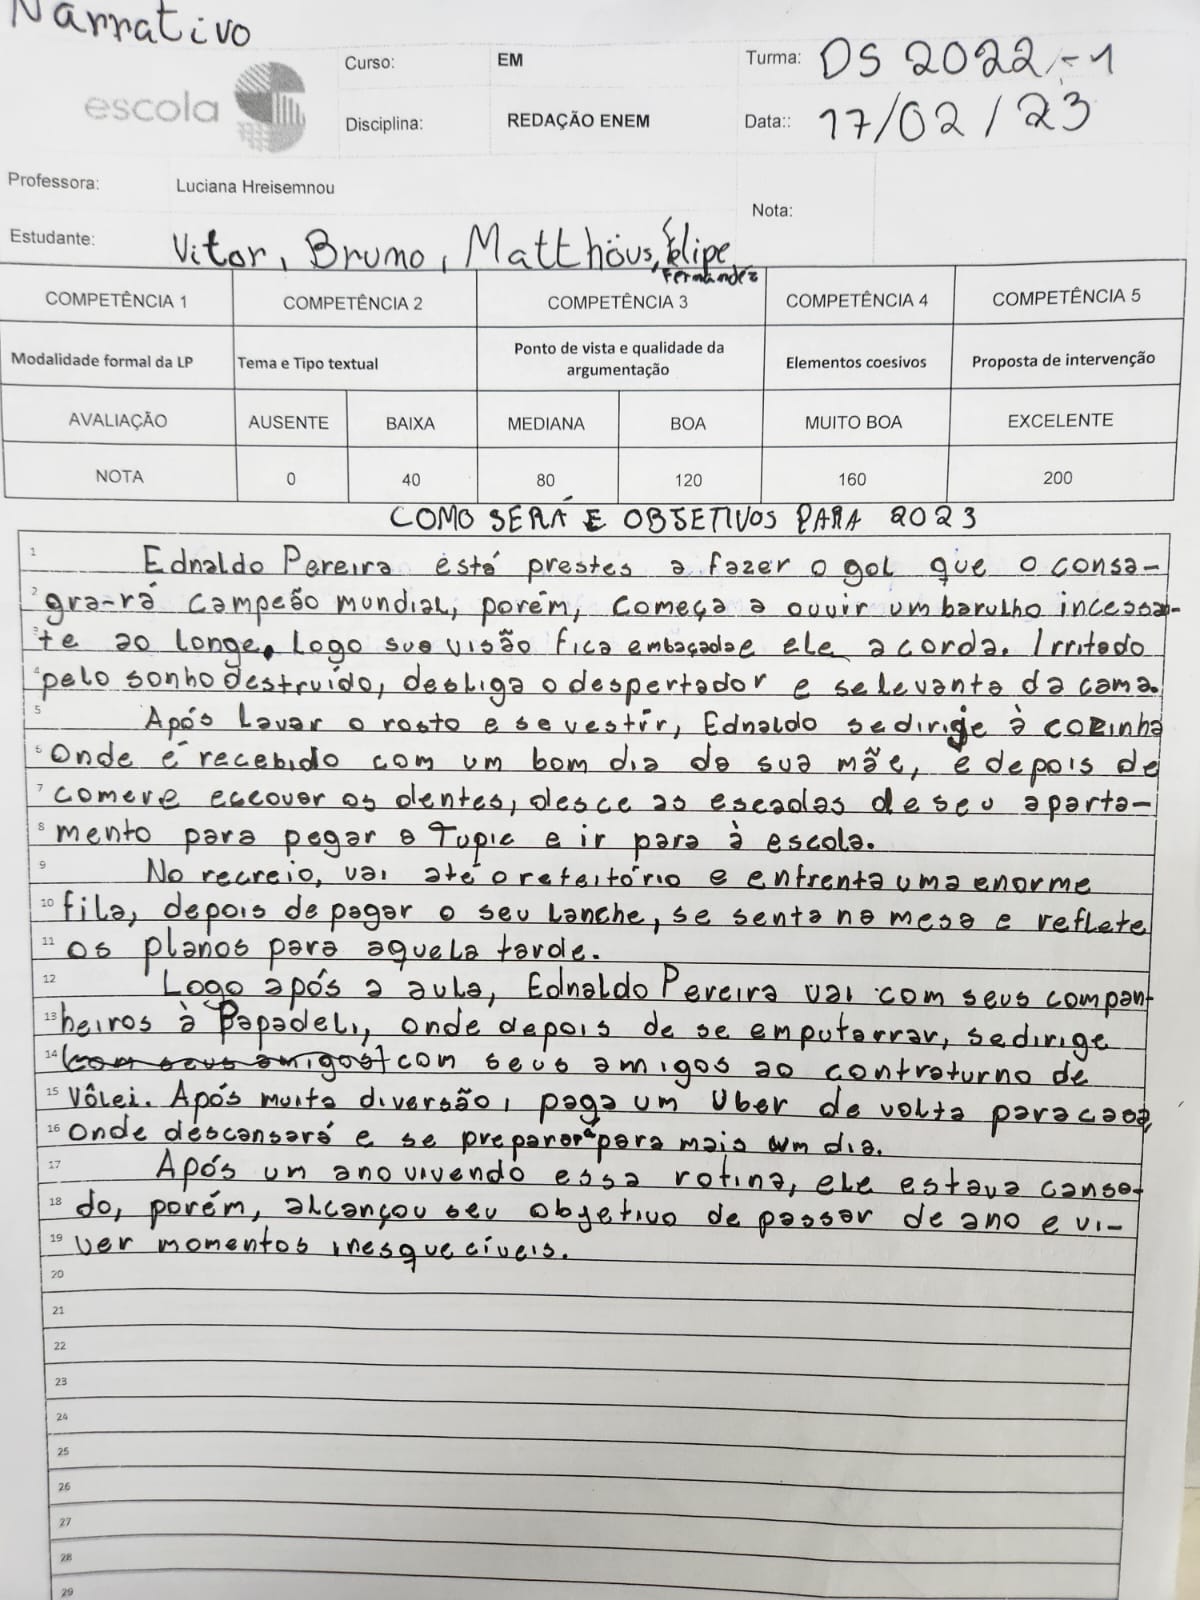 Narrativo
escola
Curso: EM Turma: DS 2022-1
Disciplina: REDAÇÃO ENEM Data:: 17/02/23
Professora: Luciana Hreisemnou
Nota:
Estudante: Vitor, Bruno, Matthöus, Felipe
Fernandez
COMPETÊNCIA 1 COMPETÊNCIA 2 COMPETÊNCIA 3 COMPETÊNCIA 4 COMPETÊNCIA 5
Modalidade formal da LP Tema e Tipo textual Ponto de vista e qualidade da argumentação Elementos coesivos Proposta de intervenção
AVALIAÇÃO AUSENTE BAIXA MEDIANA BOA MUITO BOA EXCELENTE
NOTA 0 40 80 120 160 200
COMO SERÁ E OBJETIVOS PARA 2023
1 Ednaldo Pereira está prestes a fazer o gol que o consa-
2 gra-rá campeão mundial, porém, começa a ouvir um barulho incessan-
3 te ao longe. Logo sua visão fica embaçada e ele acorda. Irritado
4 pelo sonho destruído, desliga o despertador e se levanta da cama.
5 Após lavar o rosto e se vestir, Ednaldo se dirige à cozinha
6 Onde é recebido com um bom dia da sua mãe, e depois de
7 comer e escovar os dentes, desce as escadas de seu aparta-
8 mento para pegar a Topic e ir para à escola.
9 No recreio, vai até o refeitório e enfrenta uma enorme
10 fila, depois de pagar o seu lanche, se senta na mesa e reflete
11 os planos para aquela tarde.
12 Logo após a aula, Ednaldo Pereira vai com seus compan-
13 heiros à Papadeli, onde depois de se empaturrar, se dirige
14 com seus amigos ao contraturno de
15 Vôlei. Após muita diversão, paga um Uber de volta para casa,
16 Onde descansará e se preparará para mais um dia.
17 Após um ano vivendo essa rotina, ele estava cansa-
18 do, porém, alcançou seu objetivo de passar de ano e vi-
19 ver momentos inesquecíveis.
20
21
22
23
24
25
26
27
28
29